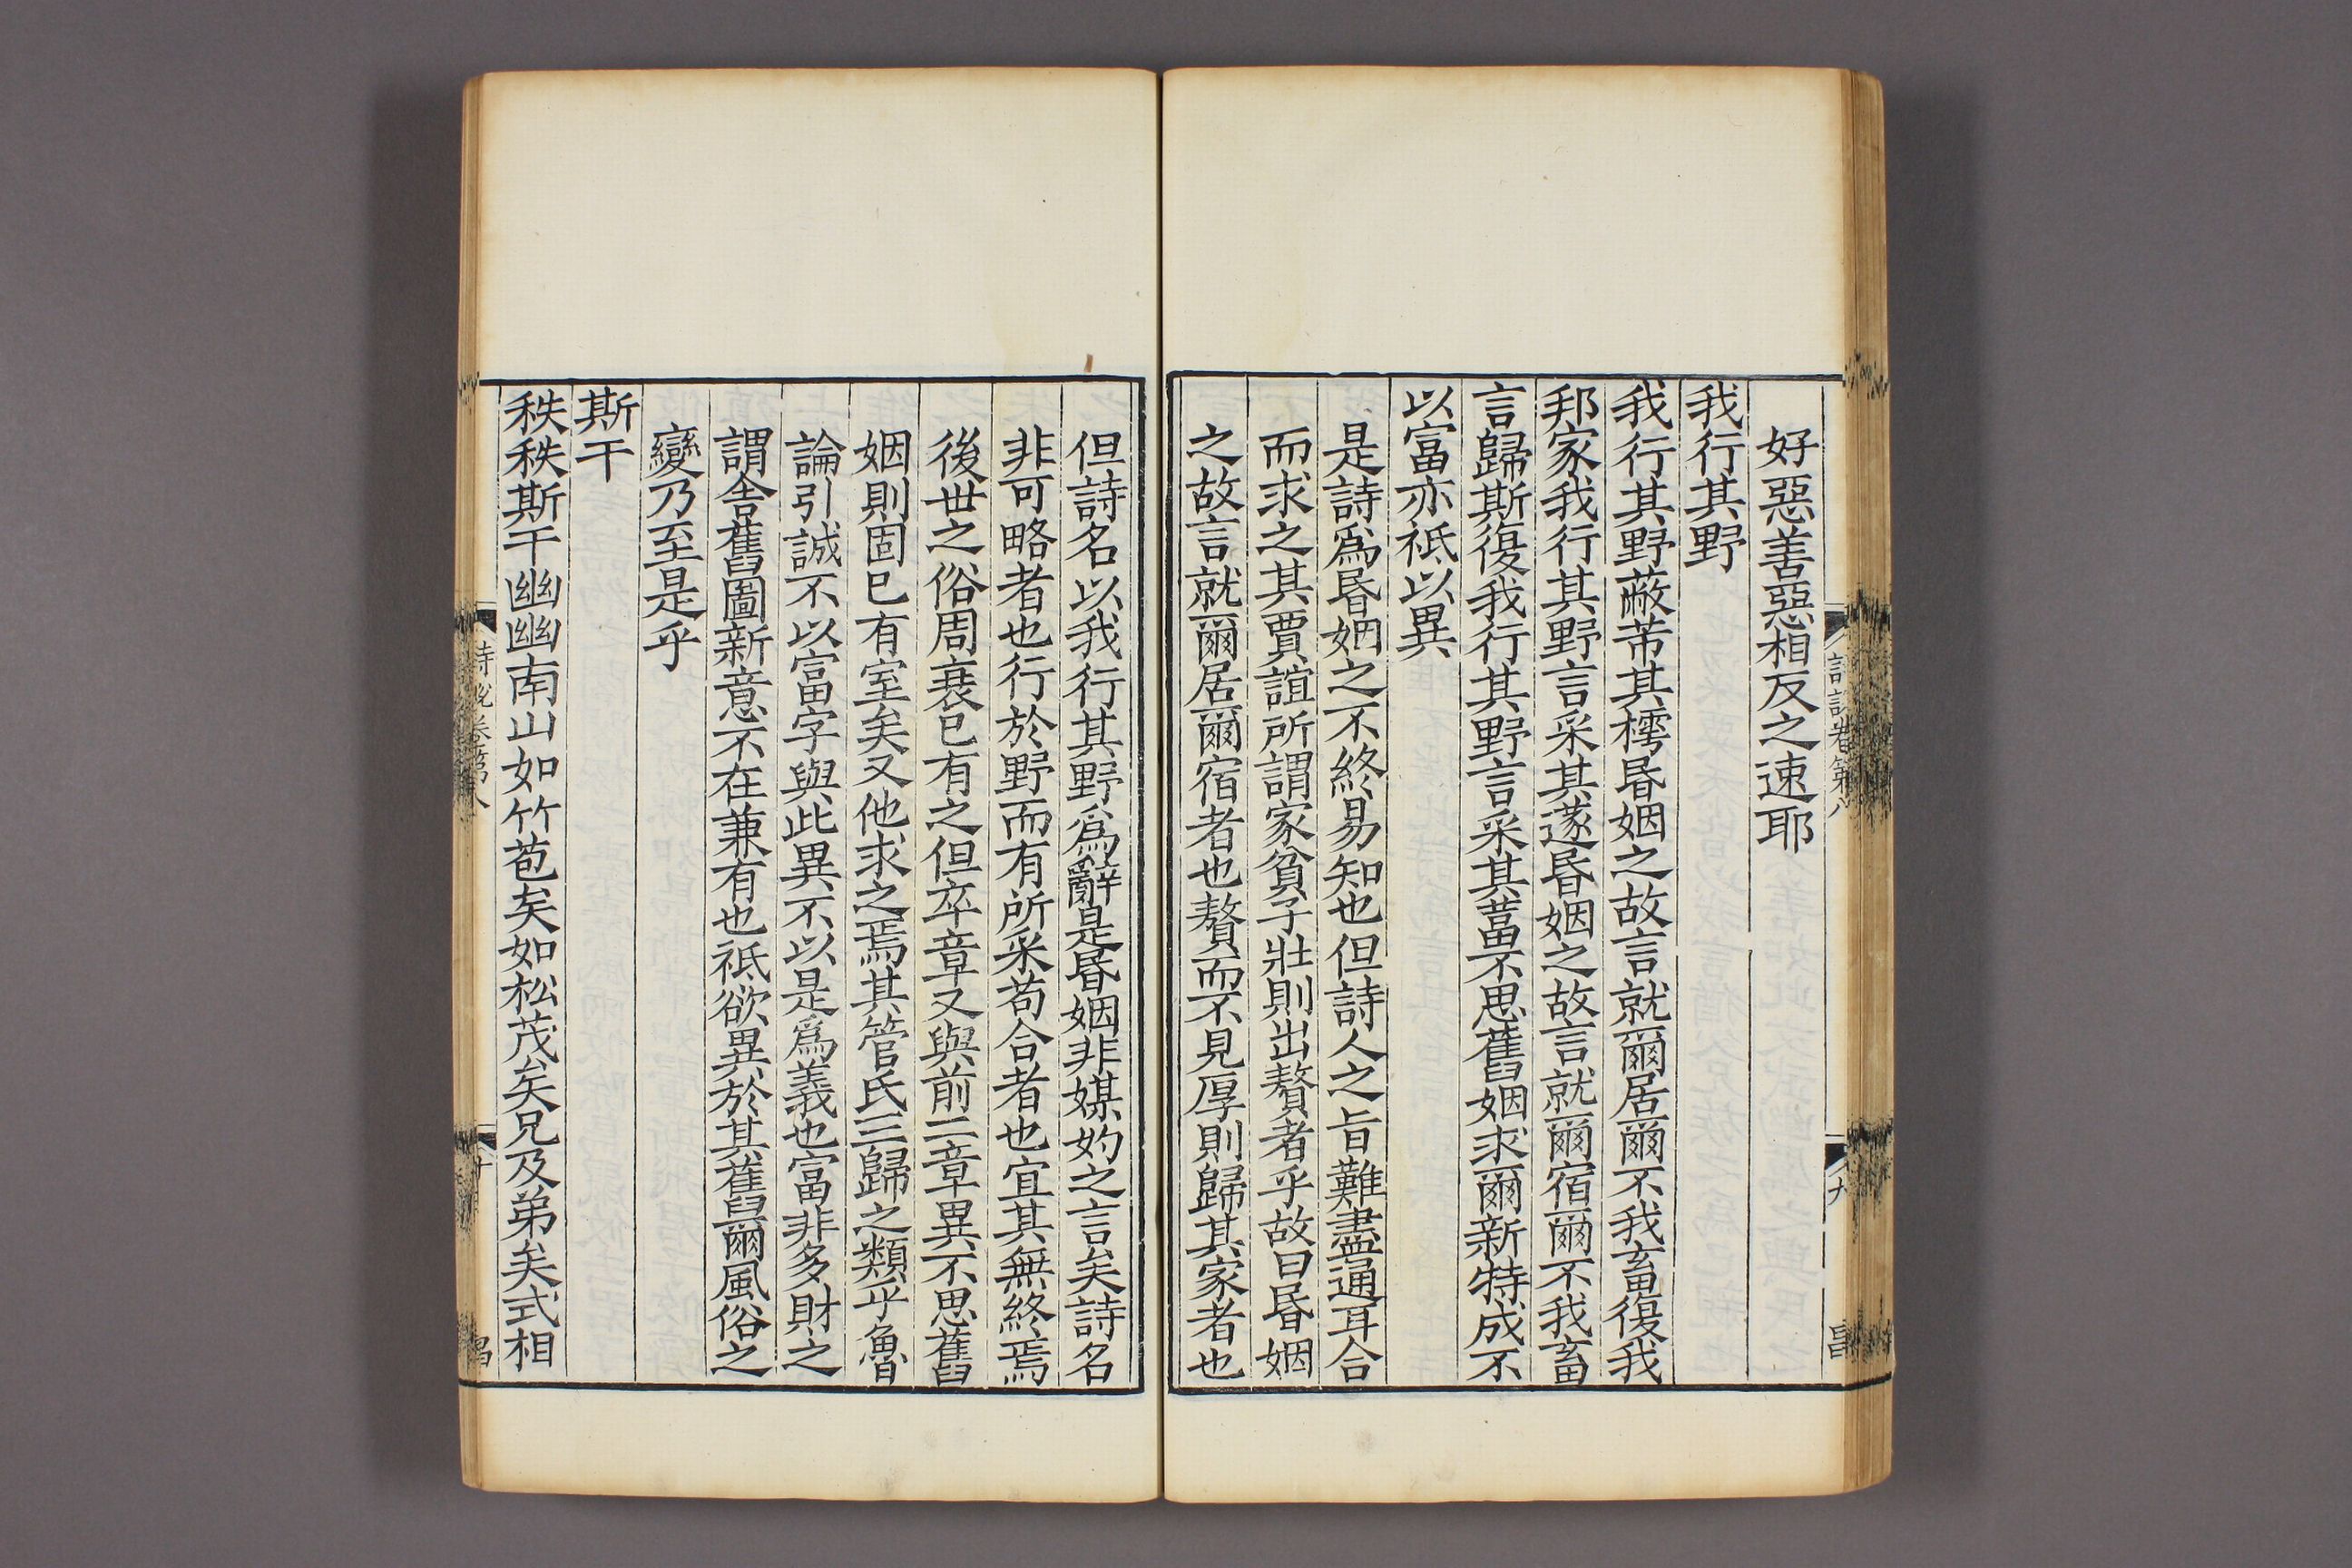 好惡善惡相反之速耶
我行其野
我行其野蔽芾其樗昬姻之故言就爾居爾不我畜復我
邦家我行其野言采其蓫昬姻之故言就爾宿爾不我畜
言歸斯復我行其野言采其葍不思舊姻求爾新特成不
以富亦祇以異
是詩爲昬姻之不終易知也但詩人之旨難盡通耳合
而求之其賈誼所謂家貧子壯則出贅者乎故曰昬姻
之故言就爾居爾宿者也贅而不見厚則歸其家者也
但詩名以我行其野爲辭是昬姻非媒妁之言矣詩名
非可略者也行於野而有所采苟合者也宜其無終焉
後世之俗周衰已有之但卒章又與前二章異不思舊
姻則固已有室矣又他求之焉其管氏三歸之類乎魯
論引誠不以富字與此異不以是爲義也富非多財之
謂舍舊圖新意不在兼有也祇欲異於其舊爾風俗之
變乃至是乎
斯干
秩秩斯干幽幽南山如竹苞矣如松茂矣兄及弟矣式相
詩説卷第八
九
昌
詩説卷第八
十
昌